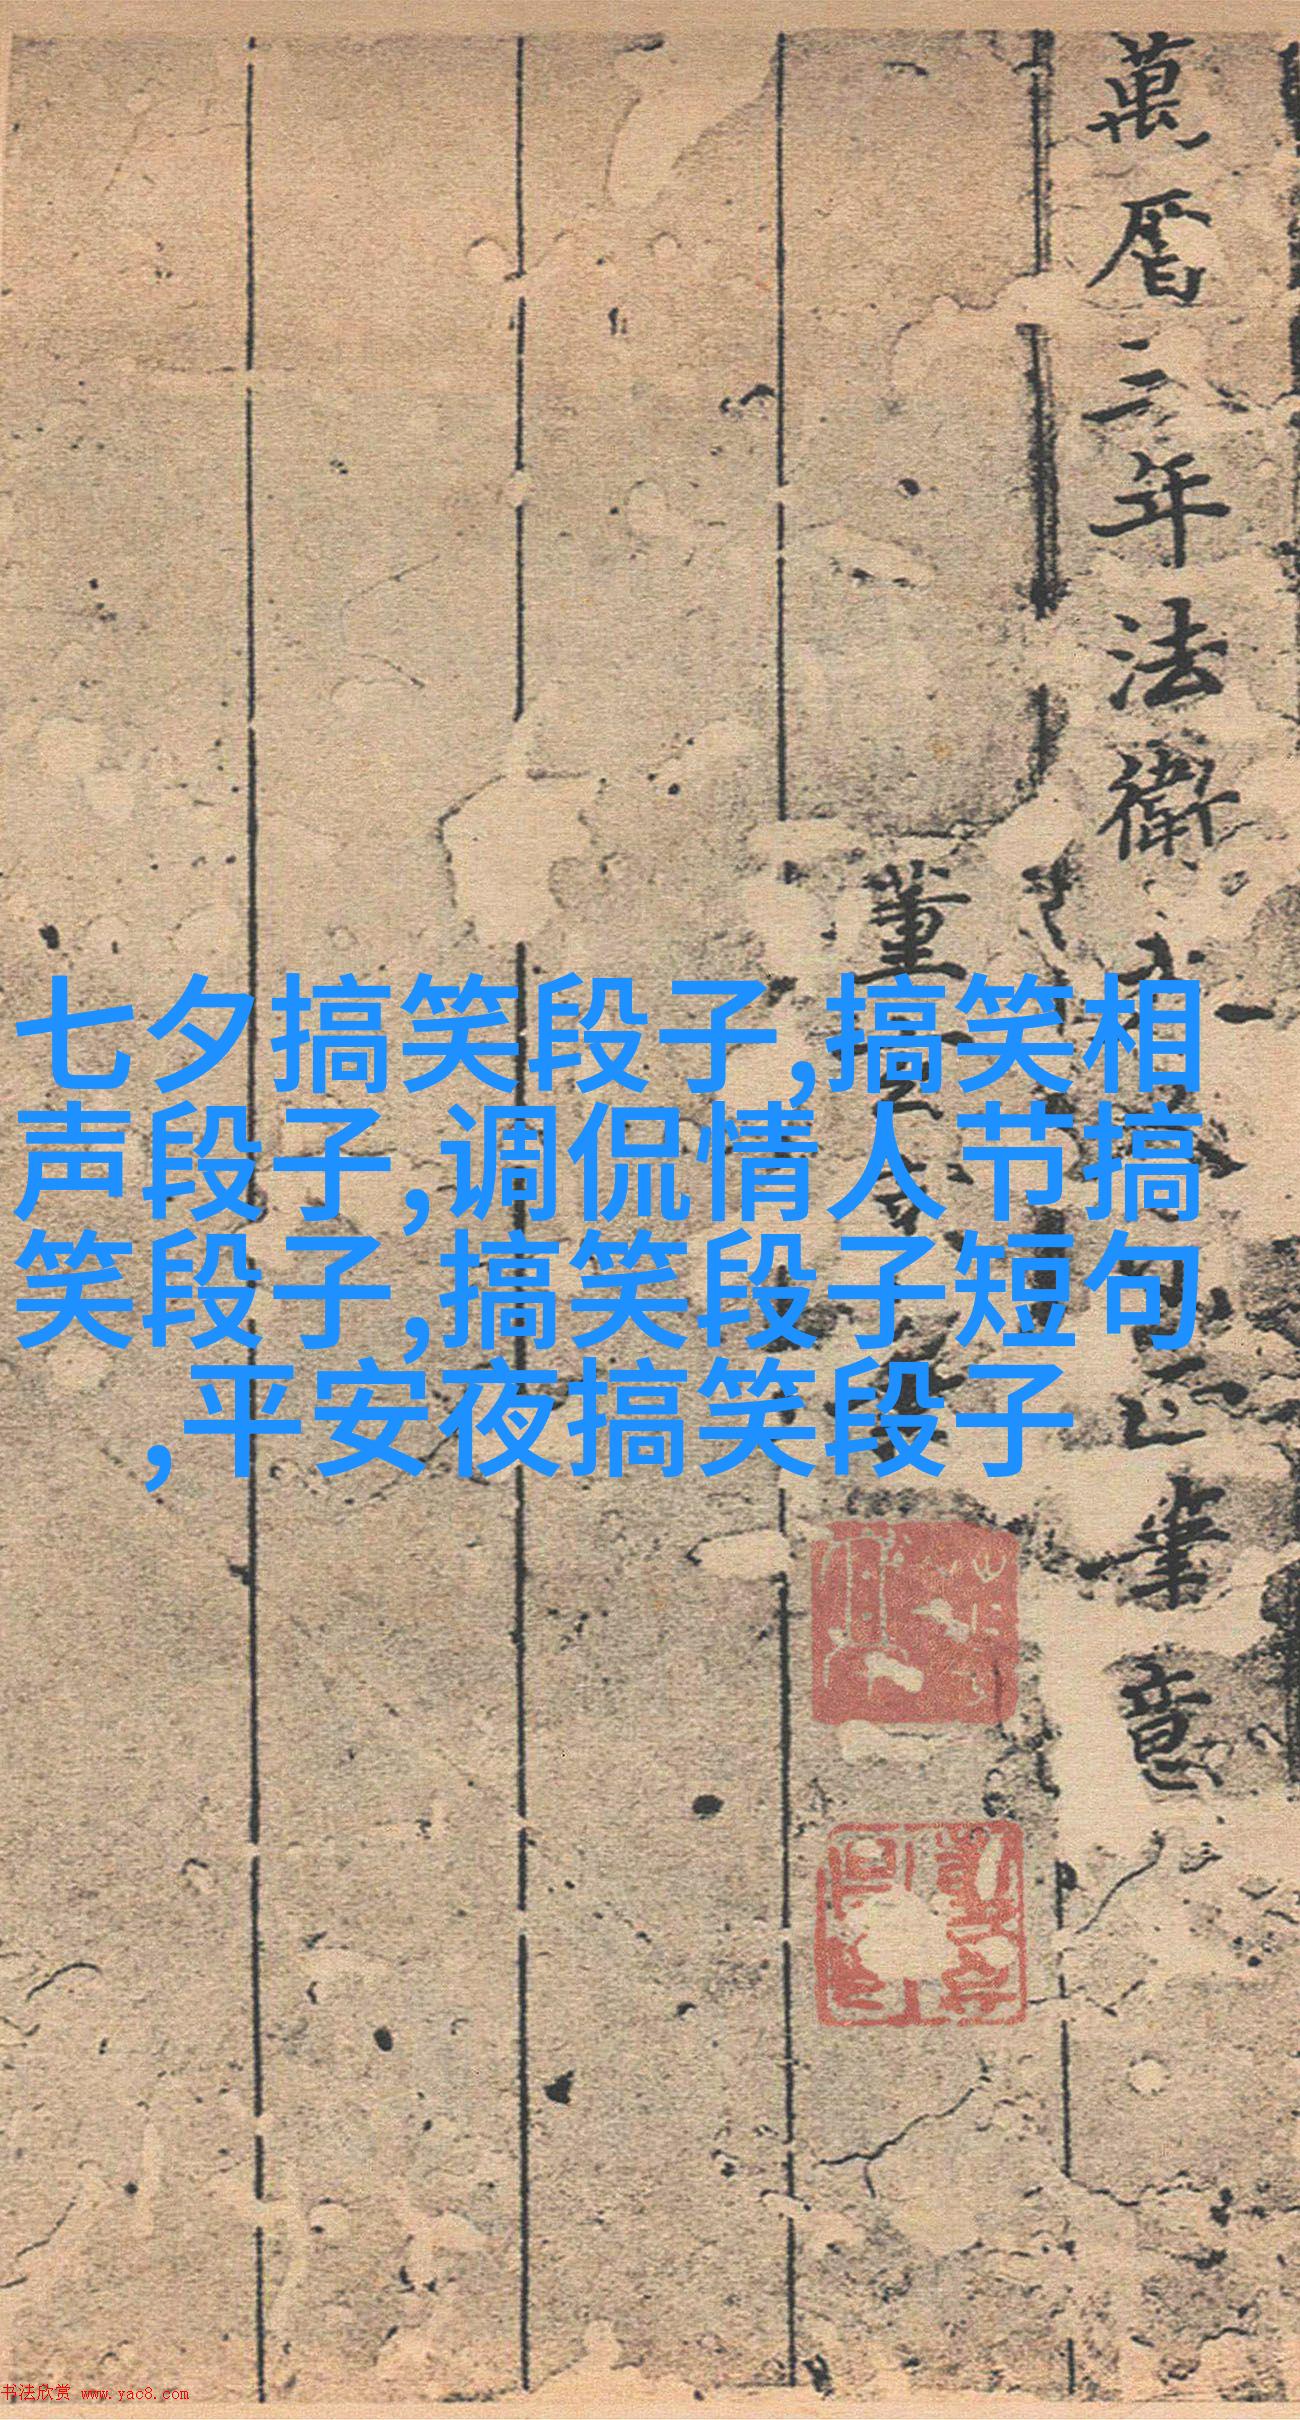 萬曆三年法衛夫人
筆意
董
七夕搞笑段子,搞笑相
声段子,调侃情人节搞
笑段子,搞笑段子短句
,平安夜搞笑段子
书法欣赏 www.yac8.com